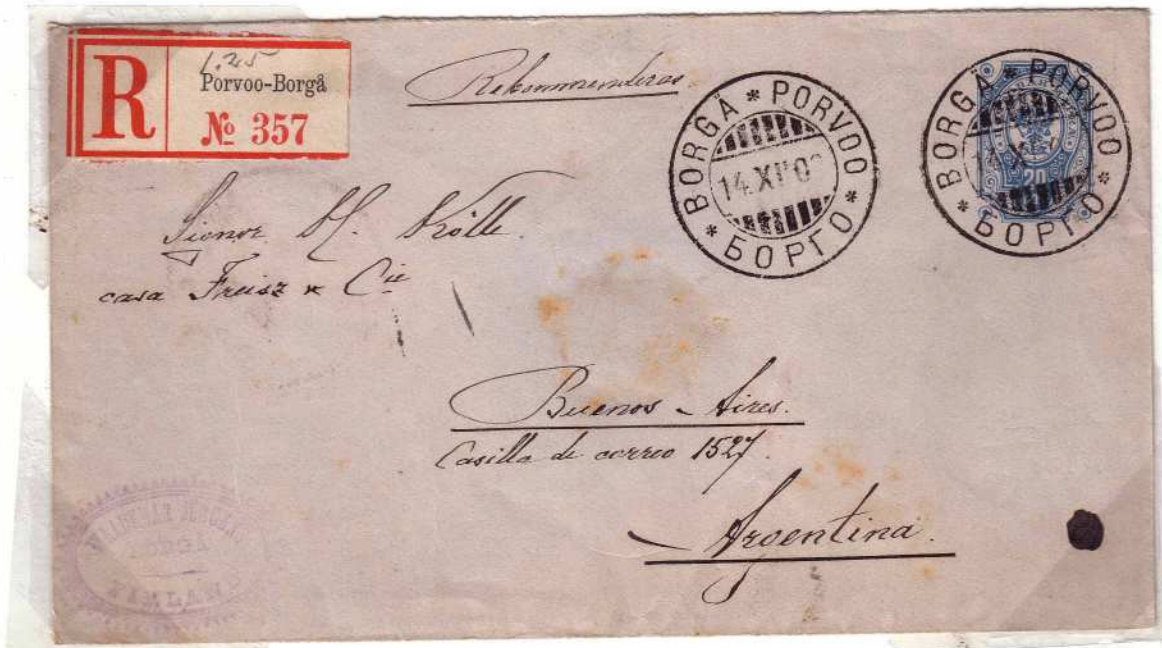 R
1.25
Porvoo-Borgå
№ 357
Rekommenderas
BORGÄ * PORVOO * БОРГО *
14.XI.0
BORGÄ * PORVOO * БОРГО *
14.XI
20
Signor H. Kölle.
casa Freisz & Cie
Buenos-Aires.
Casilla de correo 1527.
Argentina.
FINLAND